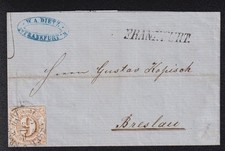 W. A. DIETZ
FRANKFURT
FRANKFURT.
Herrn Gustav Kopisch
Breslau